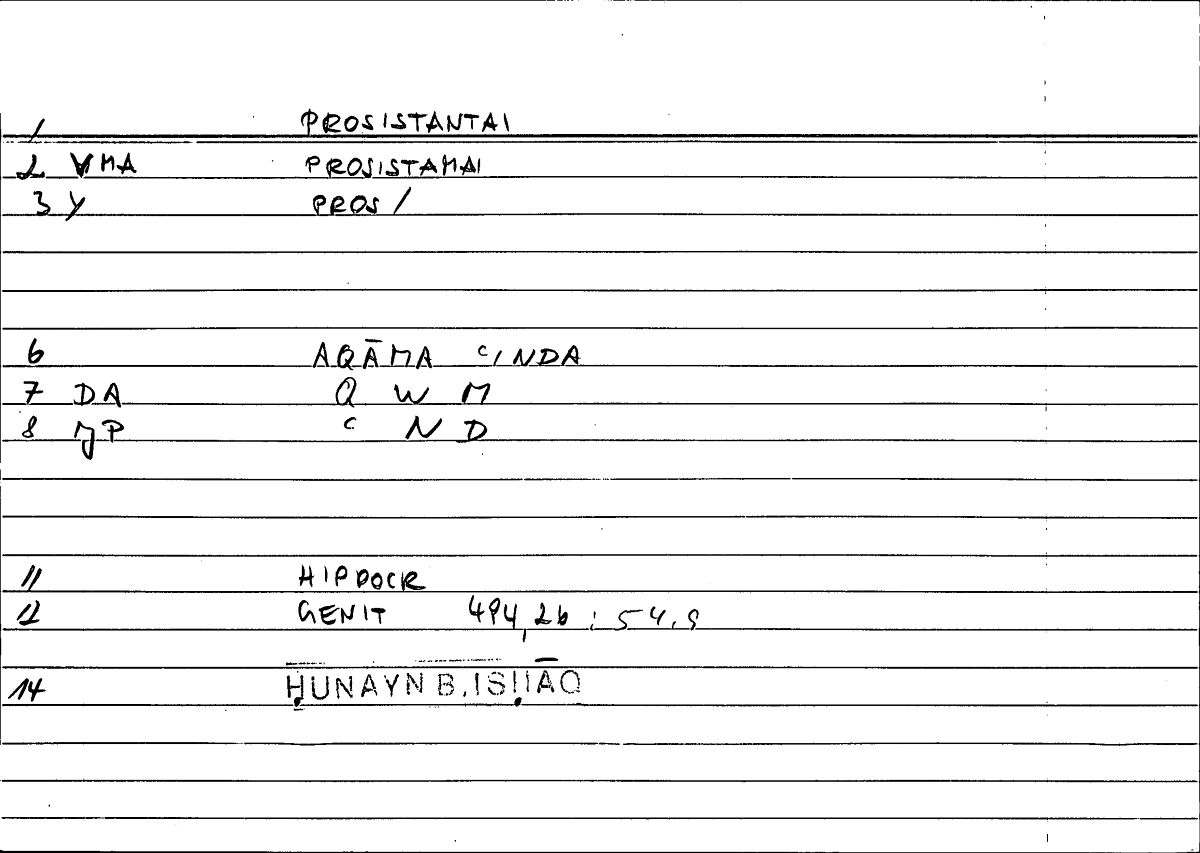 1 PROSISTANTAI
2 VMA PROSISTAMAI
3 Y PROS /
6 AQĀMA ʿINDA
7 DA Q W M
8 MP ʿ N D
11 HIPPOCR
12 GENIT 494,26 ; 54,9
14 ḤUNAYN B. ISḤĀQ